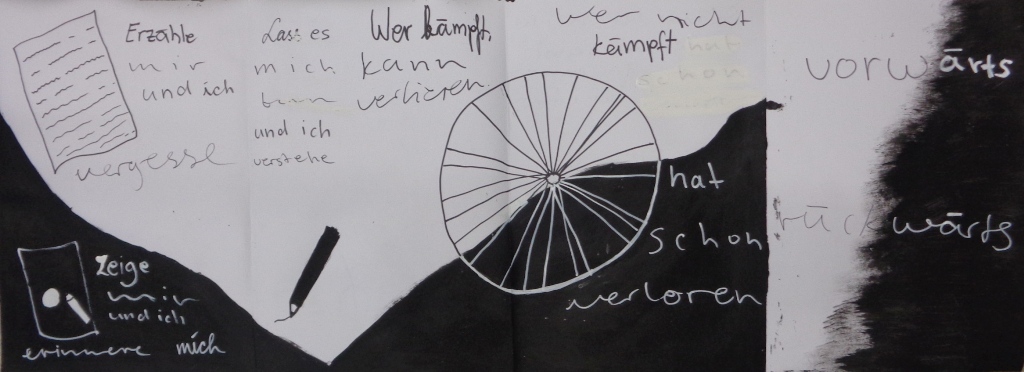 Erzähle
mir
und ich
vergesse
Zeige
mir
und ich
erinnere mich
Lass es
mich
tun
und ich
verstehe
Wer kämpft,
kann
verlieren
wer nicht
kämpft hat
schon
hat
schon
verloren
vorwärts
rückwärts